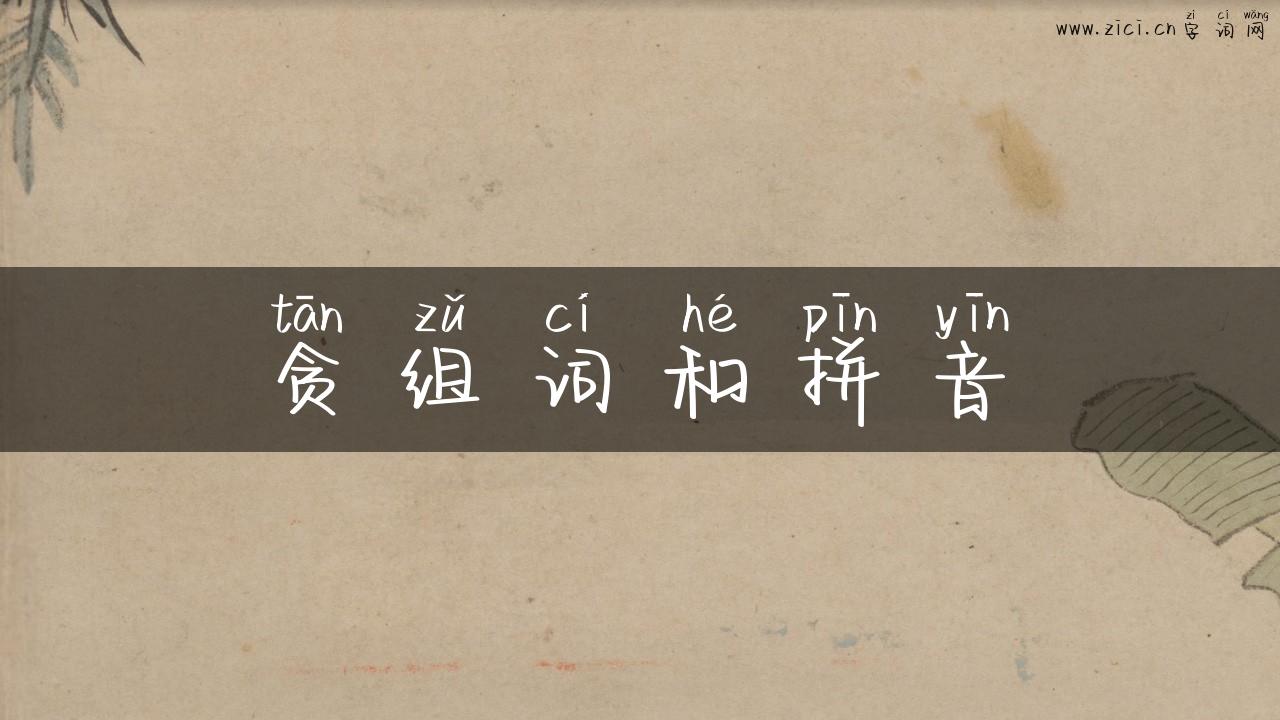 zì cí wǎng
www.zici.cn 字词网
tān zǔ cí hé pīn yīn
贪组词和拼音